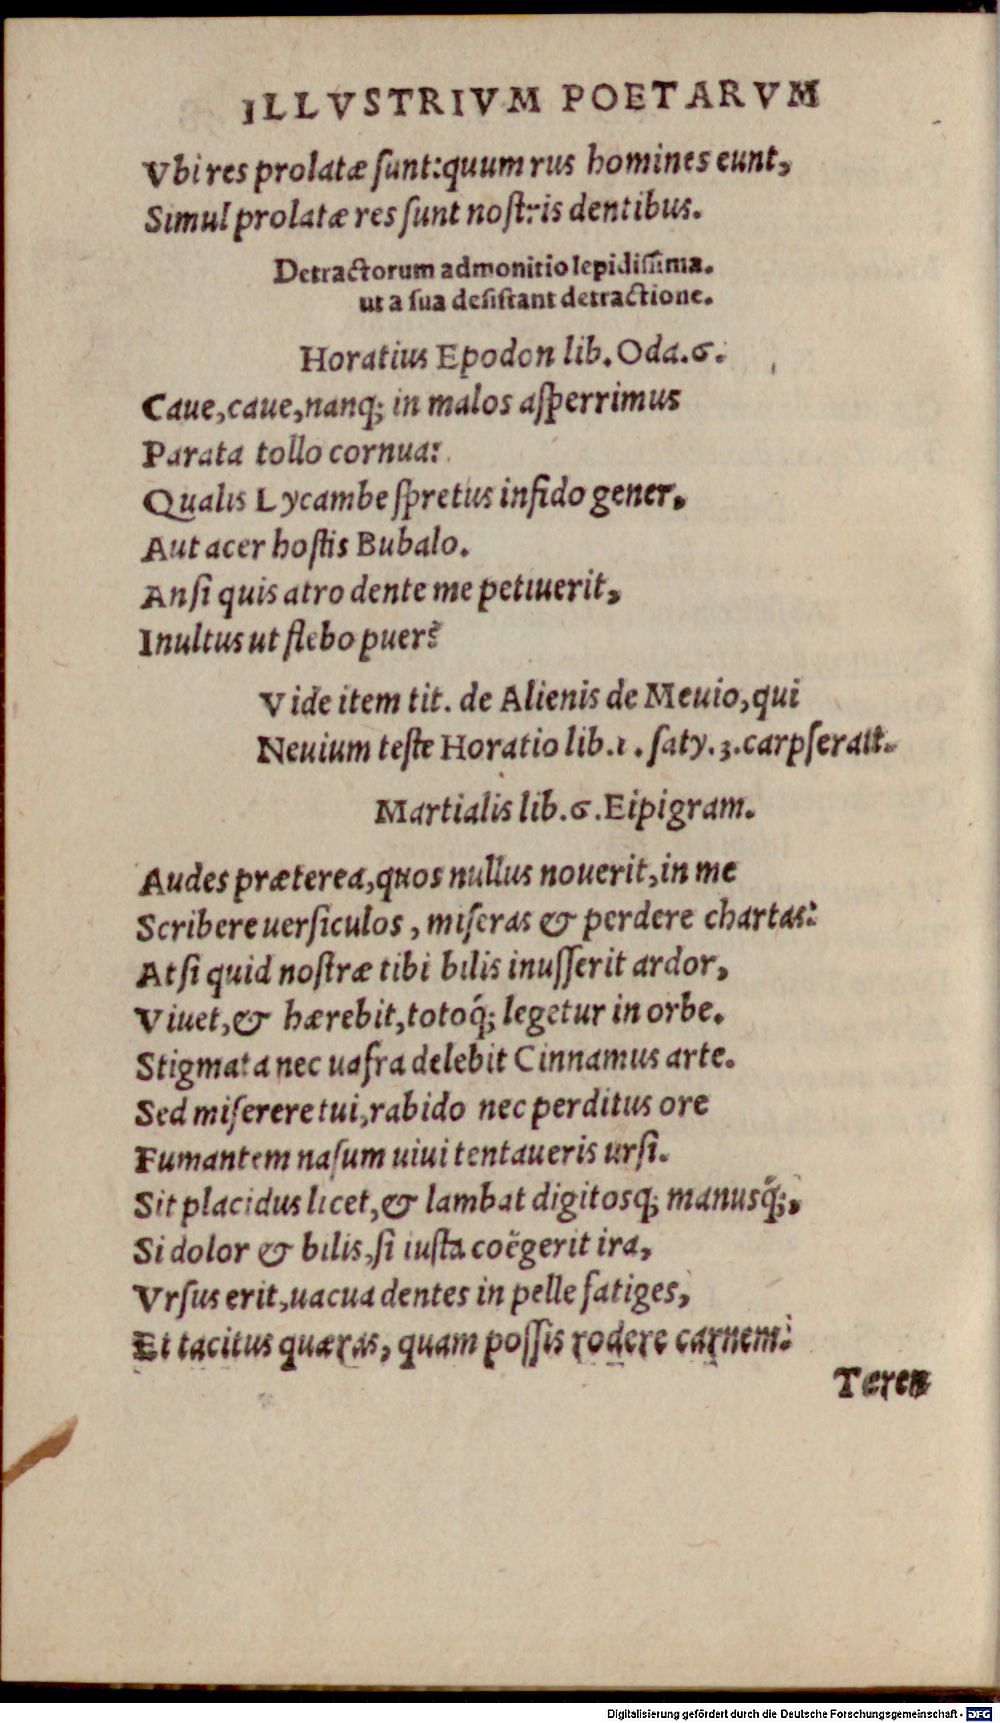 ILLVSTRIVM POETARVM
Vbi res prolatæ ſunt: quum rus homines eunt,
Simul prolatæ res ſunt noſtris dentibus.
Detractorum admonitio lepidiſſima.
ut a ſua deſiſtant detractione.
Horatius Epodon lib. Oda. 6.
Caue, caue, nanq; in malos aſperrimus
Parata tollo cornua:
Qualis Lycambe ſpretus infido gener,
Aut acer hoſtis Bubalo.
An ſi quis atro dente me petiuerit,
Inultus ut flebo puer?
Vide item tit. de Alienis de Meuio, qui
Neuium teſte Horatio lib. 1. ſaty. 3. carpſerait.
Martialis lib. 6. Eipigram.
Audes præterea, quos nullus nouerit, in me
Scribere uerſiculos, miſeras & perdere chartas:
At ſi quid noſtræ tibi bilis inuſſerit ardor,
Viuet, & hærebit, totoq́; legetur in orbe.
Stigmata nec uafra delebit Cinnamus arte.
Sed miſerere tui, rabido nec perditus ore
Fumantem naſum uiui tentaueris urſi.
Sit placidus licet, & lambat digitosq; manusq́;,
Si dolor & bilis, ſi iuſta coëgerit ira,
Vrſus erit, uacua dentes in pelle fatiges,
Et tacitus quæras, quam poſſis rodere carnem:
Teren
Digitalisierung gefördert durch die Deutsche Forschungsgemeinschaft - DFG